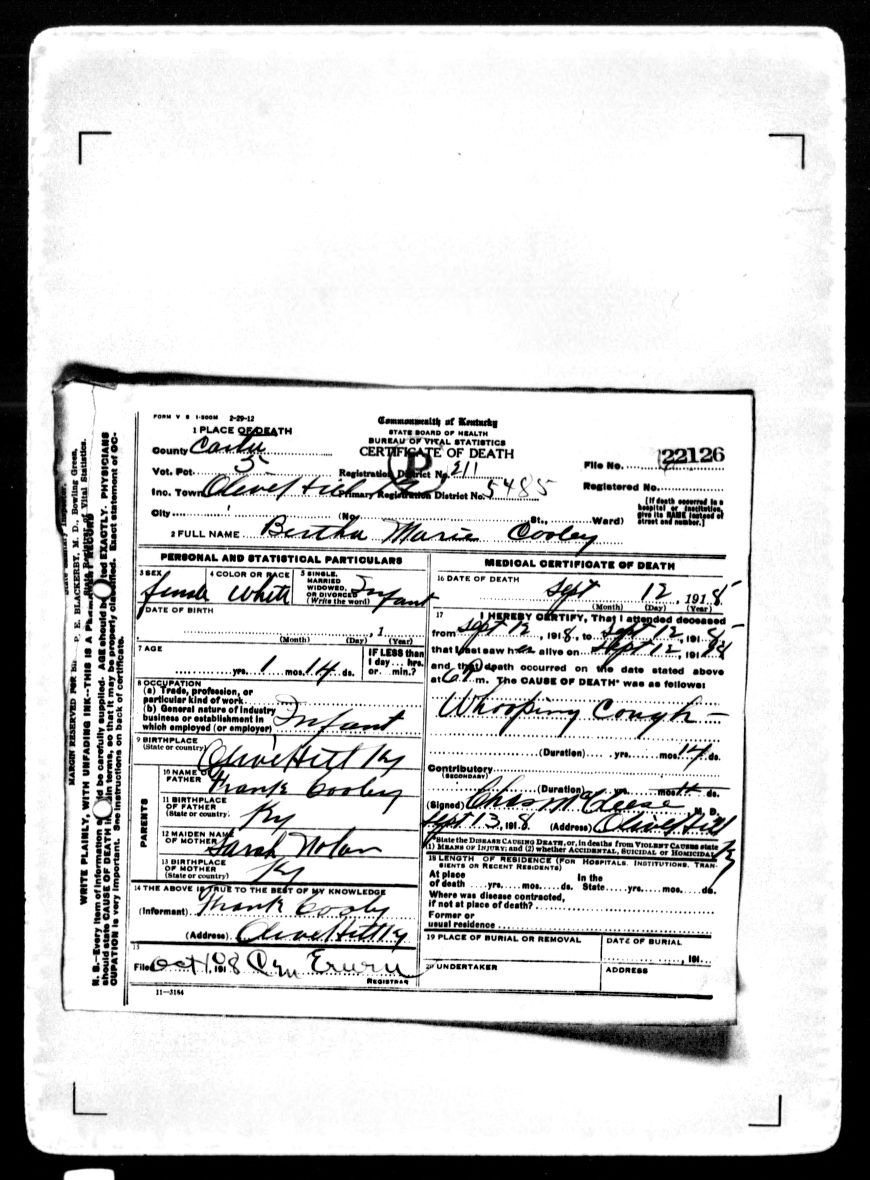 FORM V S 1-500M 2-29-12
Commonwealth of Kentucky
STATE BOARD OF HEALTH
BUREAU OF VITAL STATISTICS
CERTIFICATE OF DEATH
1 PLACE OF DEATH
County Carter
Vot. Pct. 5 Registration District No. 211
File No. 22126
Inc. Town Olive Hill Ky Primary Registration District No. 5485
Registered No.
City (No. St., Ward)
[If death occurred in a hospital or institution, give its NAME instead of street and number.]
2 FULL NAME Bertha Marie Cooley
PERSONAL AND STATISTICAL PARTICULARS
3 SEX female
4 COLOR OR RACE White
5 SINGLE, MARRIED WIDOWED, OR DIVORCED (Write the word) Infant
DATE OF BIRTH
(Month) (Day) , 1 (Year)
7 AGE
yrs. 1 mos. 14 ds.
IF LESS than 1 day... hrs. or... min.?
8 OCCUPATION
(a) Trade, profession, or
particular kind of work
(b) General nature of industry
business or establishment in
which employed (or employer) Infant
9 BIRTHPLACE
(State or country) Olive Hill Ky
PARENTS
10 NAME OF FATHER Frank Cooley
11 BIRTHPLACE OF FATHER (State or country) Ky
12 MAIDEN NAME OF MOTHER Sarah Nolan
13 BIRTHPLACE OF MOTHER (State or country) Ky
14 THE ABOVE IS TRUE TO THE BEST OF MY KNOWLEDGE
(Informant) Frank Cooley
(Address) Olive Hill Ky
15
Filed Oct 10, 1918
REGISTRAR
11-3184
MEDICAL CERTIFICATE OF DEATH
16 DATE OF DEATH
Sept 12, 1918
(Month) (Day) (Year)
17 I HEREBY CERTIFY, That I attended deceased
from Sept 12, 1918, to Sept 12, 1918
that I last saw her alive on Sept 12, 1918
and that death occurred on the date stated above
at m. The CAUSE OF DEATH* was as follows:
Whooping Cough –
(Duration) yrs. mos. 14 ds.
Contributory
(SECONDARY)
(Duration) yrs. mos. 14 ds.
(Signed) Chas McCleese M. D.
Sept 13, 1918 (Address) Olive Hill Ky
*State the DISEASE CAUSING DEATH, or, in deaths from VIOLENT CAUSES state
(1) MEANS OF INJURY; and (2) whether ACCIDENTAL, SUICIDAL or HOMICIDAL
18 LENGTH OF RESIDENCE (FOR HOSPITALS, INSTITUTIONS, TRANSIENTS OR RECENT RESIDENTS)
At place of death yrs. mos. ds. In the State yrs. mos. ds.
Where was disease contracted,
if not at place of death?
Former or
usual residence
19 PLACE OF BURIAL OR REMOVAL
DATE OF BURIAL
, 191
20 UNDERTAKER
ADDRESS
MARGIN RESERVED FOR
P. E. BLACKERBY, M. D., Bowling Green,
WRITE PLAINLY, WITH UNFADING INK--THIS IS A
N. B.—Every item of information should be carefully supplied. AGE should be stated EXACTLY. PHYSICIANS
should state CAUSE OF DEATH in terms, so that it may be properly classified. Exact statement of OCCUPATION is very important. See instructions on back of certificate.